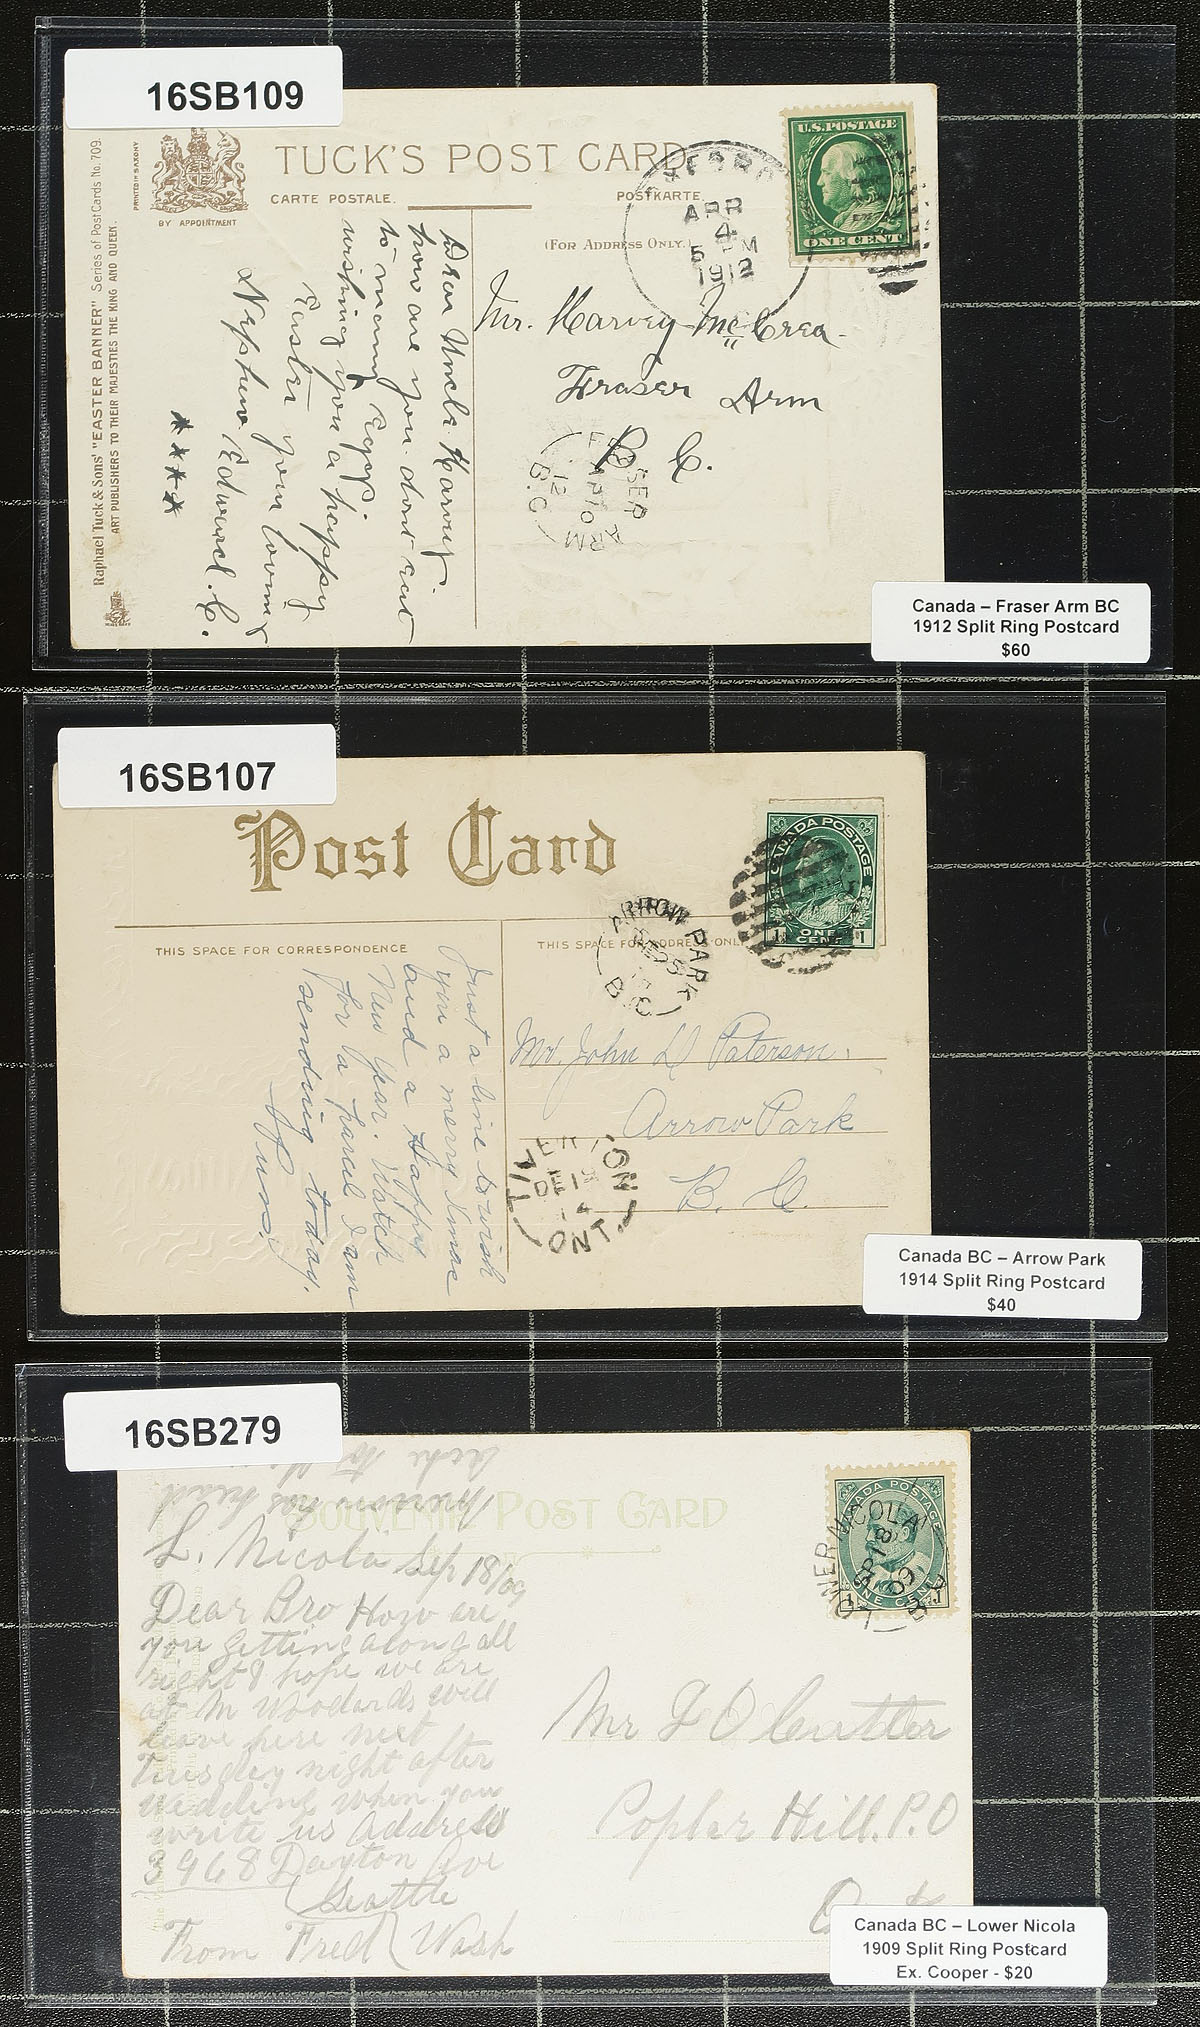 16SB109
TUCK'S POST CARD
CARTE POSTALE.
POSTKARTE
(FOR ADDRESS ONLY.)
BY APPOINTMENT
PRINTED IN SAXONY
Raphael Tuck & Sons' "EASTER BANNER" Series of Post Cards No. 709.
ART PUBLISHERS TO THEIR MAJESTIES THE KING AND QUEEN.
U.S. POSTAGE
ONE CENT
APR
4
5 PM
1912
Dear Uncle Harvey.
how are you. dont eat
to many Eggs.
wishing you a happy
Easter your loving
Nephew Edward. C.
Mr. Harvey McCrea.
Fraser Arm
B. C.
FRASER ARM
AP 10
12
B.C
Canada – Fraser Arm BC
1912 Split Ring Postcard
$60
16SB107
Post Card
THIS SPACE FOR CORRESPONDENCE
THIS SPACE FOR ADDRESS ONLY
CANADA POSTAGE
1 ONE CENT 1
ARROW PARK
B.C
Just a line to wish
you a merry Xmas
and a Happy
New Year. Watch
for a parcel I am
sending today.
Mr. John D Paterson.
Arrow Park
B. C.
TIVERTON
DE 19
14
ONT.
Canada BC – Arrow Park
1914 Split Ring Postcard
$40
16SB279
SOUVENIR POST CARD
person has head
ache to
CANADA POSTAGE
ONE CENT
LOWER NICOLA
SP 18
09
B.C
L. Nicola Sep 18/09
Dear Bro How are
you getting along all
right I hope we are
at M Woodards will
leave here next
Tuesday night after
wedding when you
write us address
3968 Dayton Ave
Seattle
From Fred Wash
Mr F O Cutler
Poplar Hill. P.O
Canada BC – Lower Nicola
1909 Split Ring Postcard
Ex. Cooper - $20